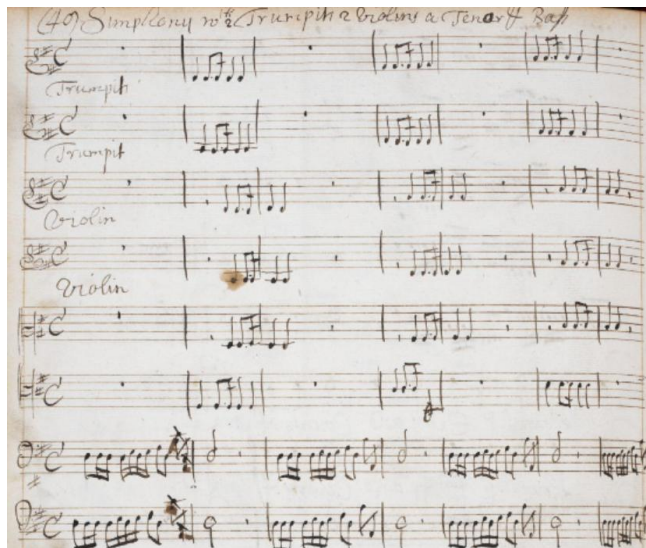 (49) Simphony wth 2 Trumpitt 2 Violins a Tenor & Bass
Trumpitt
Trumpit
Violin
Violin